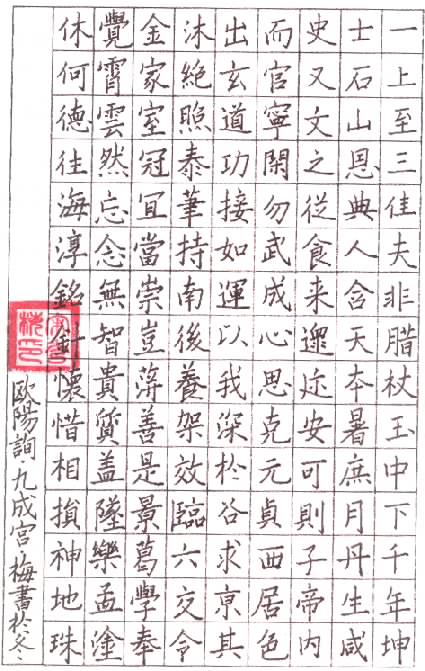 一上至三佳夫非腊杖玉中下千年坤
士石山恩典人含天本暑庶月丹生咸
史又文之從食来遐迩安可則子帝内
而官寧閑勿武成心思克元貞西居色
出玄道功接如運以我深於谷求京其
沐絕照泰筆持南後養架效臨六交令
金家室冠宜當崇豈薄善是景葛學奉
覺霄雲然忘念無智貴質蓋墜樂孟塗
休何德往海淳銘針懷惜相損神地珠
歐陽詢九成宮梅書於冬